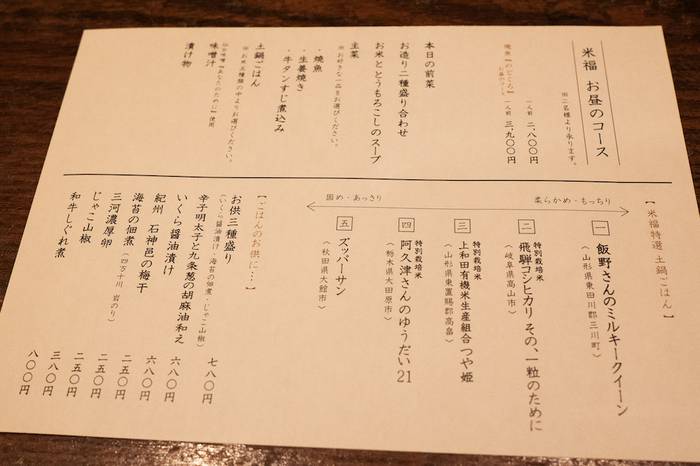 米福 お昼のコース
※二名様より承ります。
一人前 二、八〇〇円
焼魚『のどぐろ』
お昼のコース 一人前 三、九〇〇円
本日の前菜
お造り二種盛り合わせ
お米ととうもろこしのスープ
主菜
※お好きな一品をお選びください。
・焼魚
・生姜焼き
・牛タンすじ煮込み
土鍋ごはん
※お米五種類の中よりお選びください。
味噌汁
仙台味噌『あなたのために』使用
漬け物
【米福特選 土鍋ごはん】
柔らかめ・もっちり
固め・あっさり
一 飯野さんのミルキークイーン
（山形県東田川郡三川町）
二 特別栽培米
飛騨コシヒカリ その、一粒のために
（岐阜県高山市）
三 特別栽培米
上和田有機米生産組合 つや姫
（山形県東置賜郡高畠）
四 特別栽培米
阿久津さんのゆうだい21
（栃木県大田原市）
五 ズッパーサン
（秋田県大館市）
【ごはんのお供に…】
お供三種盛り
（いくら醤油漬け・海苔の佃煮・じゃこ山椒） 七八〇円
辛子明太子と九条葱の胡麻油和え 六八〇円
いくら醤油漬け 六八〇円
紀州 石神邑の梅干 二五〇円
海苔の佃煮（四万十川 岩のり） 二五〇円
三河濃厚卵 二五〇円
じゃこ山椒 三八〇円
和牛しぐれ煮 八〇〇円